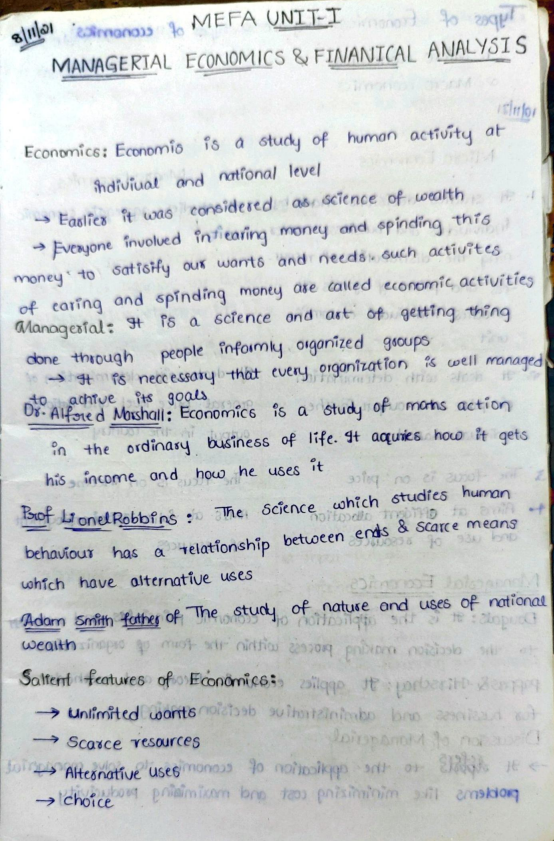 8/11/01
MEFA UNIT-I
MANAGERIAL ECONOMICS & FINANICAL ANALYSIS
15/11/01
Economics: Economis is a study of human activity at
indiviual and national level
→ Earlier it was considered as science of wealth
→ Everyone involved in earing money and spinding this
money to satisify our wants and needs. such activites
of earing and spinding money are called economic activities
Managerial: It is a science and art of getting thing
done through people informly organized groups
→ It is neccessary that every organization is well managed
to achive its goals
Dr. Alfored Marshall: Economics is a study of mams action
in the ordinary business of life. It aquries how it gets
his income and how he uses it
Prof Lionel Robbins: The science which studies human
behaviour has a relationship between ends & scarce means
which have alternative uses
Adam Smith father of The study of nature and uses of national
wealth
Salient features of Economics:
→ Unlimited wants
→ Scarce resources
→ Alternative uses
→ choice